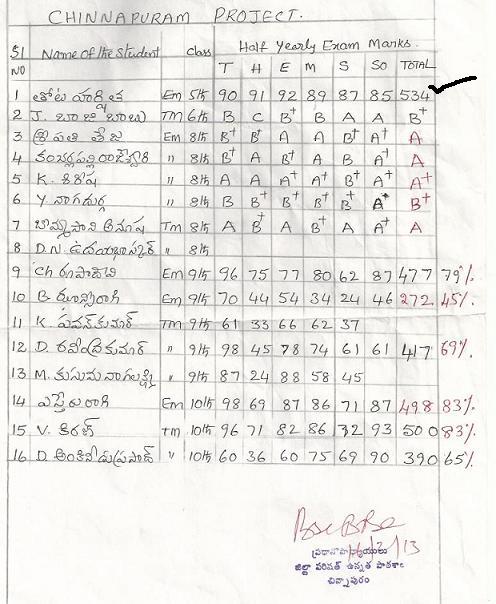 CHINNAPURAM PROJECT.
Sl NO Name of the Student class Half Yearly Exam Marks.
T H E M S SO TOTAL
1 తోట హర్షిత Em 5th 90 91 92 89 87 85 534
2 J. బాజి బాబు TM 6th B C B+ B A A B+
3 శ్రీపతి తేజ Em 8th B+ B+ A A B+ A+ A
4 Em 8th B+ A B+ A B A+ A
5 K. శిరీష " 8th A A A A+ B+ A+ A+
6 Y నాగదుర్గ " 8th B B+ B+ B+ B+ A+ B+
7 TM 8th A B+ A B+ A A+ A
8 D.N. ఉదయభాస్కర్ " 8th
9 Ch రూపాదేవి Em 9th 96 75 77 80 62 87 477 79%
10 B. ఝాన్సీరాణి Em 9th 70 44 54 34 24 46 272 45%
11 K. పవన్ కుమార్ TM 9th 61 33 66 62 37
12 D. రవీంద్రకుమార్ " 9th 98 45 78 74 61 61 417 69%
13 M. కుసుమ నాగలక్ష్మి " 9th 87 24 88 58 45
14 ఎస్తేరు రాణి Em 10th 98 69 87 86 71 87 498 83%
15 V. కిరణ్ TM 10th 96 71 82 86 72 93 500 83%
16 D. అంకినీడు ప్రసాద్ " 10th 60 36 60 75 69 90 390 65%
ప్రధానోపాధ్యాయులు
జిల్లా పరిషత్ ఉన్నత పాఠశాల
చిన్నాపురం